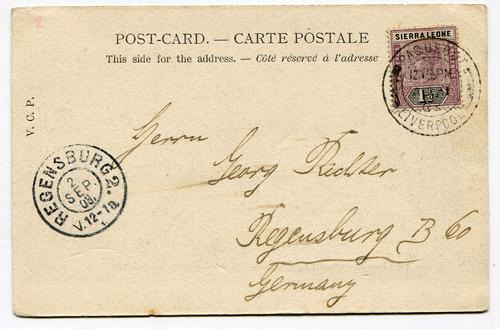 2
POST-CARD. — CARTE POSTALE
This side for the address. — Côté réservé à l'adresse
SIERRA LEONE
PAQUEBOT
LIVERPOOL
V. C. P.
Herrn
Georg Richter
Regensburg B 60
Germany
REGENSBURG 2.
2
SEP.
V.12-1